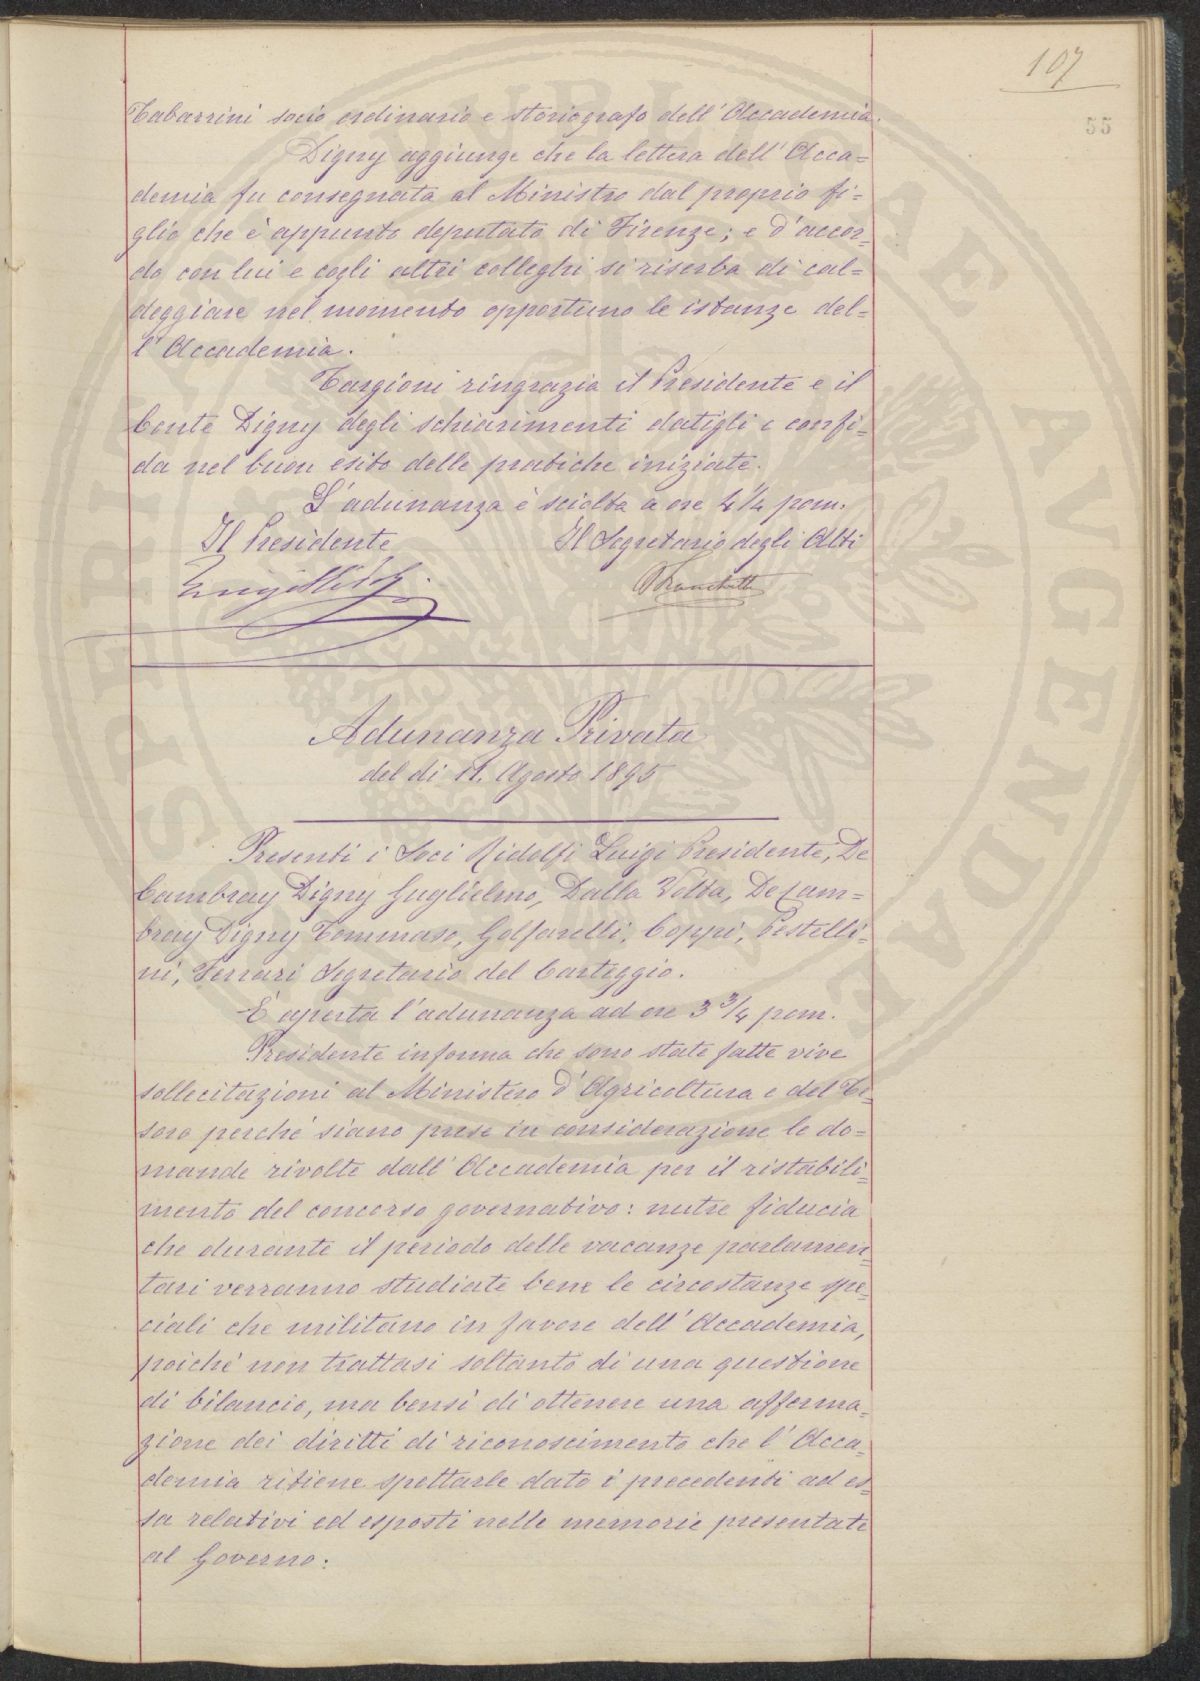 107
55
Tabarrini socio ordinario e storiografo dell'Accademia.
Digny aggiunge che la lettera dell'Acca=
demia fu consegnata al Ministro dal proprio fi=
glio che è appunto deputato di Firenze; e d'accor=
do con lui e cogli altri colleghi si riserba di cal=
deggiare nel momento opportuno le istanze del=
l'Accademia.
Targioni ringrazia il Presidente e il
Conte Digny degli schiarimenti datigli e confi=
da nel buon esito delle pratiche iniziate.
L'adunanza è sciolta a ore 4 1/4 pom.
Il Presidente Il Segretario degli Atti
Adunanza Privata
del dì 11. Agosto 1895
Presenti i Soci Ridolfi Luigi Presidente, De
Cambray Digny Guglielmo, Dalla Volta, De Cam=
bray Digny Tommaso, Golfarelli, Coppi, Pestelli=
ni, Ferrari Segretario del Carteggio.
È aperta l'adunanza ad ore 3 3/4 pom.
Presidente informa che sono state fatte vive
sollecitazioni al Ministero d'Agricoltura e del Te=
soro perché siano prese in considerazione le do=
mande rivolte dall'Accademia per il ristabili=
mento del concorso governativo: nutre fiducia
che durante il periodo delle vacanze parlamen=
tari verranno studiate bene le circostanze spe=
ciali che militano in favore dell'Accademia,
poiché non trattasi soltanto di una questione
di bilancio, ma bensì di ottenere una afferma=
zione dei diritti di riconoscimento che l'Acca=
demia ritiene spettarle dato i precedenti ad es=
sa relativi ed esposti nelle memorie presentate
al Governo: